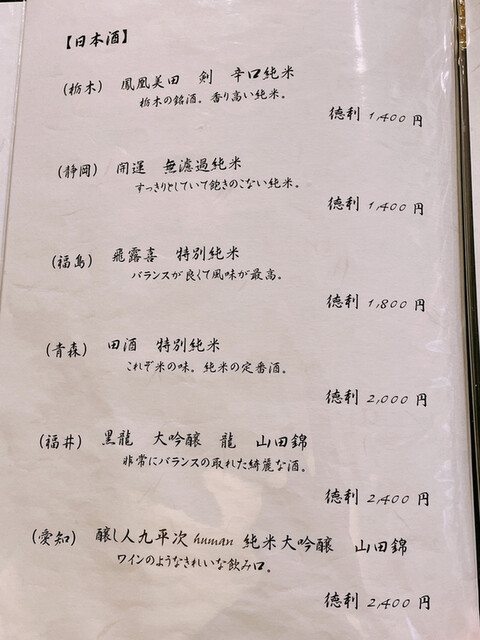 【日本酒】
(栃木) 鳳凰美田 剣 辛口純米
栃木の銘酒。香り高い純米。
徳利 1,400 円
(静岡) 開運 無濾過純米
すっきりとしていて飽きのこない純米。
徳利 1,400 円
(福島) 飛露喜 特別純米
バランスが良くて風味が最高。
徳利 1,800 円
(青森) 田酒 特別純米
これぞ米の味。純米の定番酒。
徳利 2,000 円
(福井) 黒龍 大吟醸 龍 山田錦
非常にバランスの取れた綺麗な酒。
徳利 2,400 円
(愛知) 醸し人九平次 human 純米大吟醸 山田錦
ワインのようなきれいな飲み口。
徳利 2,400 円